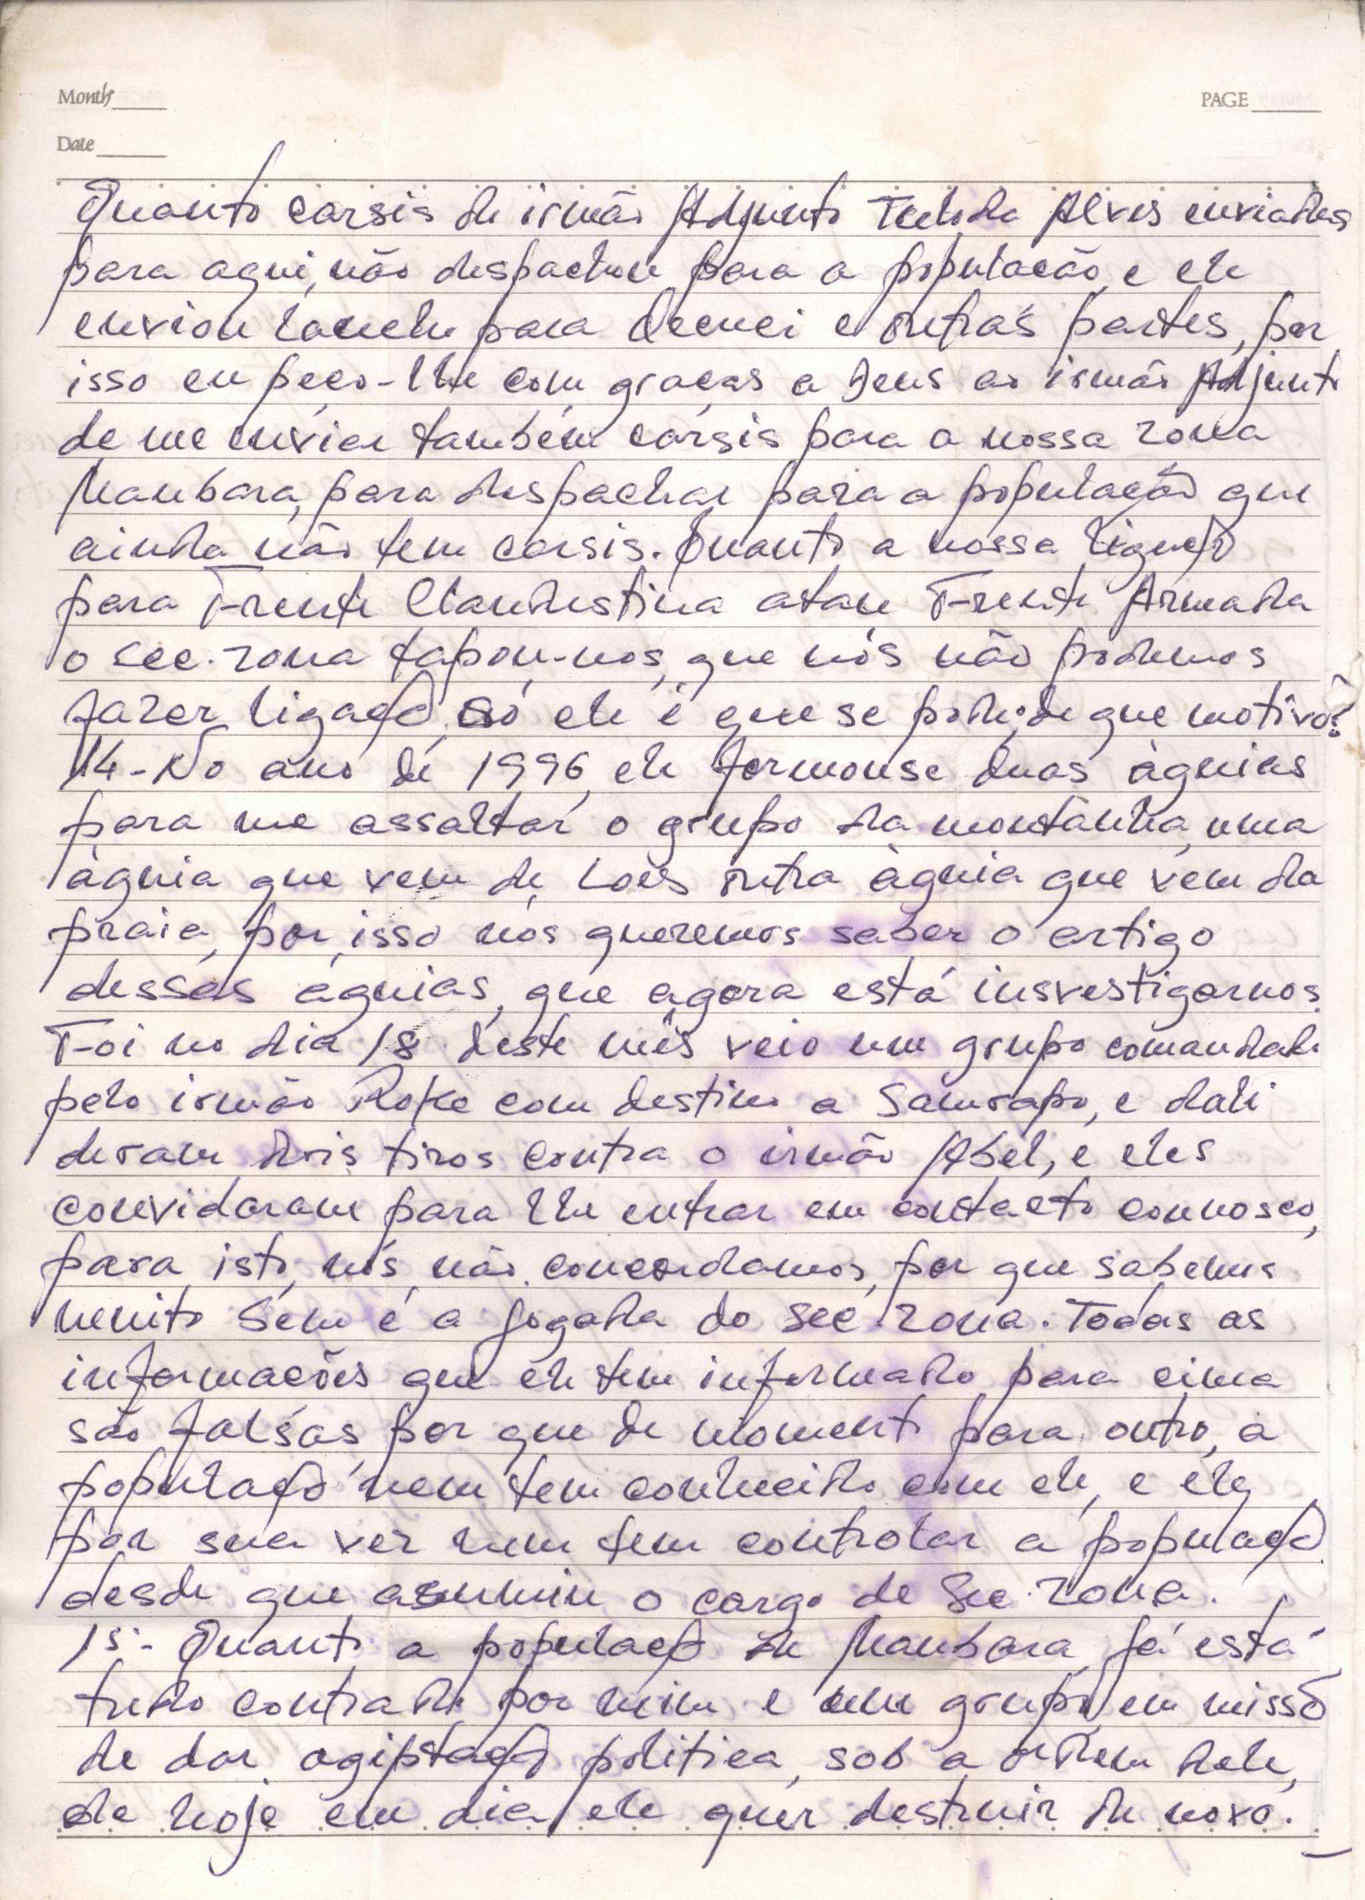 Month
Date
PAGE
Quanto carsis de irmão Adjunto Alves enviados
para aqui, não despachou para a populacão, e ele
enviou para e outras partes, por
isso eu peço-lhe com graças a Deus ao irmão Adjunto
de me enviar também carsis para a nossa zona
Maubara, para despachar para a populacão que
ainda não tem carsis. Quanto a nossa ligação
para Frente Clandestina atau Frente Armada
o sec. zona tapou-nos, que nós não podemos
fazer ligação, só ele é que se pode; de que motivo?
14- No ano de 1996, ele formouse duas àguias
para me assaltar o grupo da montanha, uma
àguia que vem de Loes outra àguia que vem da
praia, por isso nós queremos saber o artigo
dessas águias, que agora está insvestigarnos.
Foi no dia 18 deste mês veio um grupo comandado
pelo irmão Roke com destino a Samrapo, e dali
deram dois tiros contra o irmão Abel, e eles
convidaram para lhe entrar em contacto connosco,
para isto, nós não concordamos, por que sabemos
muito bem é a jogada do Sec. zona. Todas as
informacões que ele tem informado para cima
são falsas, por que de momento para outro, a
população nem tem conhecido com ele, e ele
por sua vez nem tem controlar a população
desde que assumiu o cargo de Sec. zona.
15- Quanto a população de Maubara, já está
tudo por mim e um grupo em missão
de dar política, sob a ordem dele,
de hoje em dia, ele quer destruir de novo.